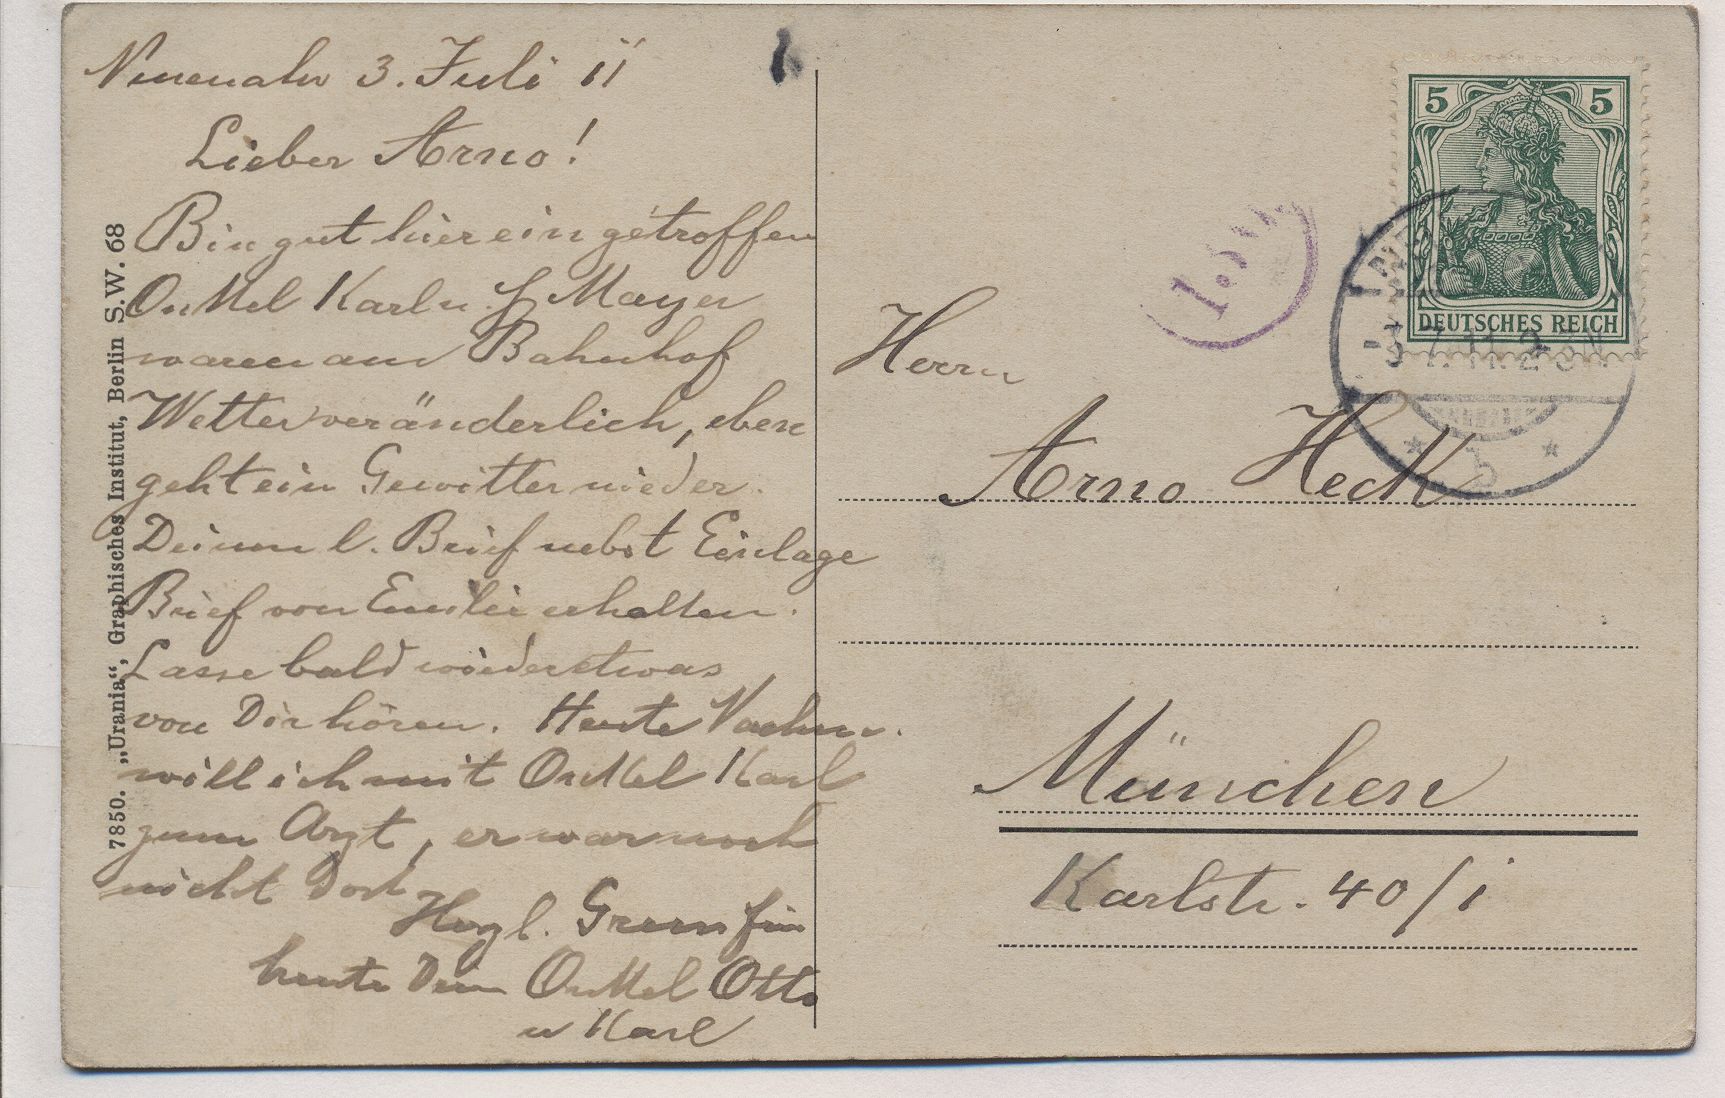 Neuenahr 3. Juli 11
Lieber Arno!
Bin gut hier eingetroffen
Onkel Karl u. Mayer
waren am Bahnhof
Wetter veränderlich, eben
geht ein Gewitter nieder.
Deinen l. Brief nebst Einlage
Brief von Emilie erhalten.
Lasse bald wieder etwas
von Dir hören. Heute Nachm.
will ich mit Onkel Karl
zum Arzt, er war noch
nicht dort
Herzl. Gruss für
heute Dein Onkel Otto
u Karl
7850. „Urania“, Graphisches Institut, Berlin S.W. 68
5 5
DEUTSCHES REICH
3.7.11.2-3N
* b *
1.
Herrn
Arno Heck
München
Karlstr. 40/I